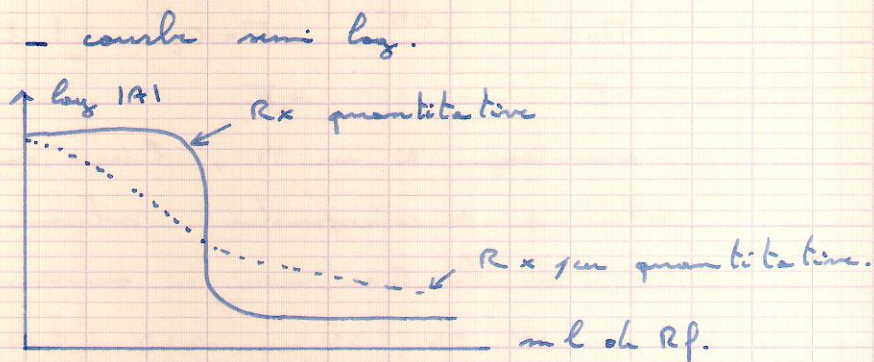 - courbe semi log.
log |A|
Rx quantitative
Rx peu quantitative.
ml de Rf.